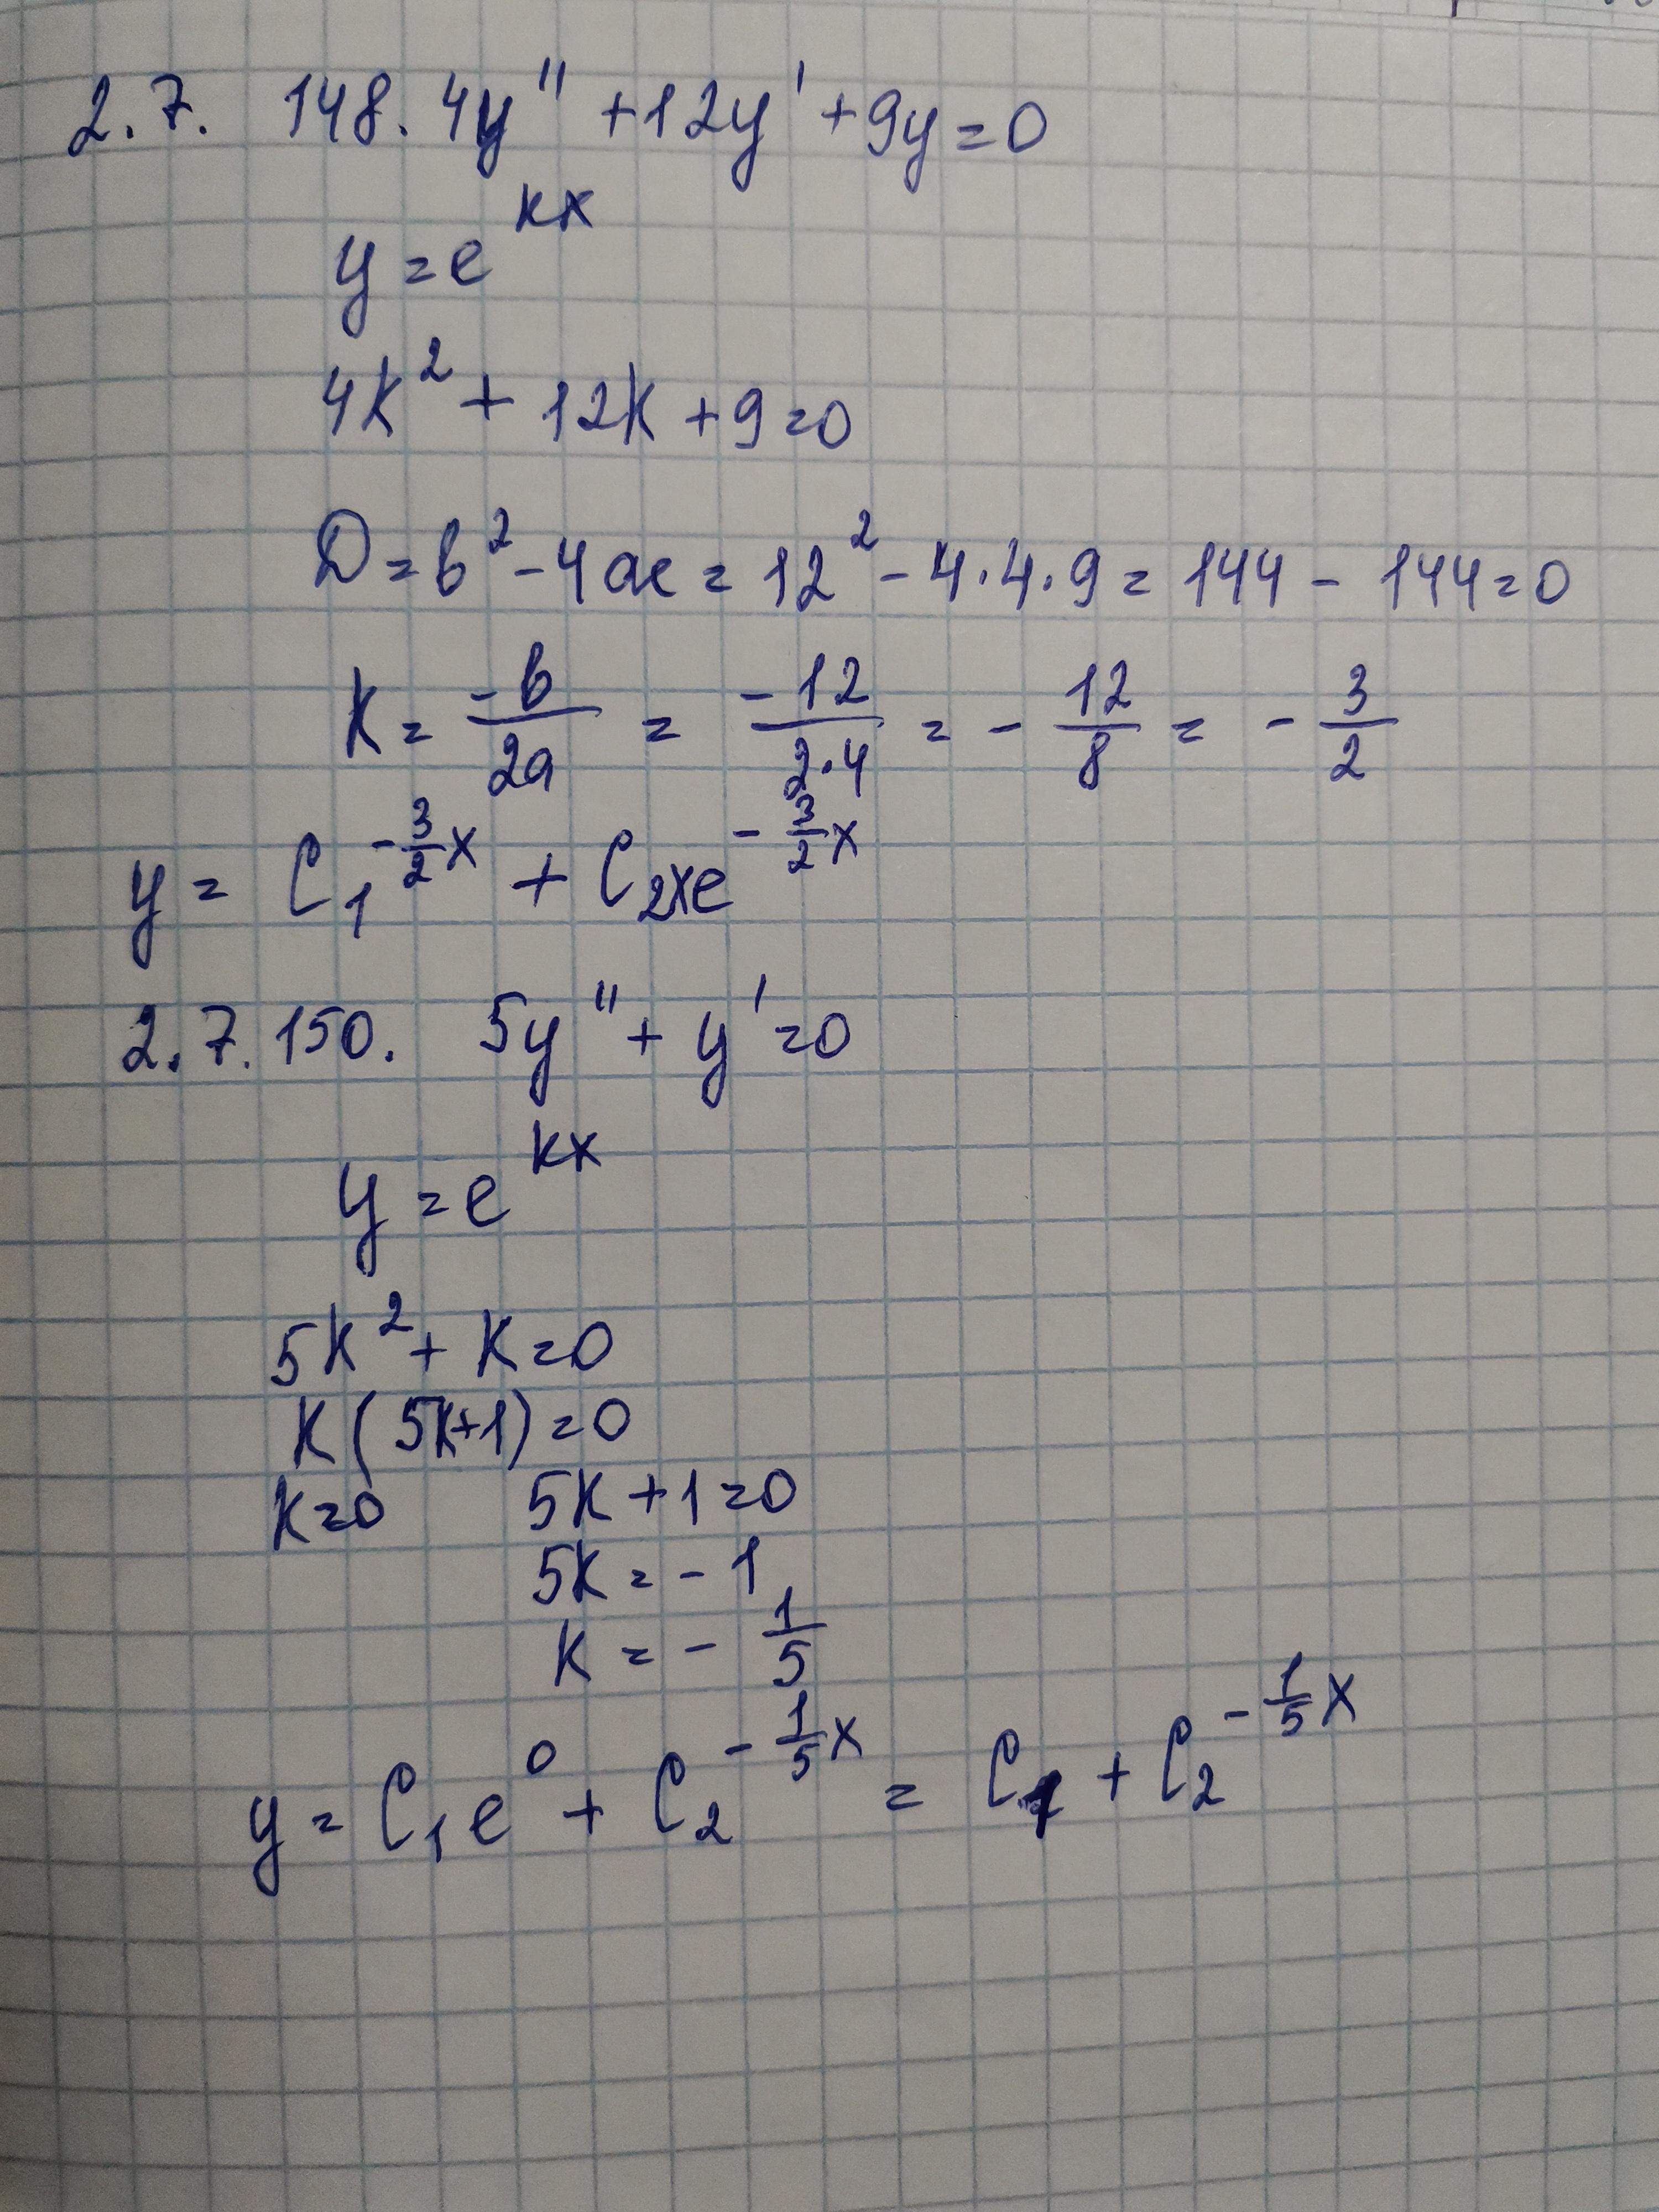 2.7. 148. 4y'' + 12y' + 9y = 0
y = e^{kx}
4k² + 12k + 9 = 0
D = b² - 4ac = 12² - 4·4·9 = 144 - 144 = 0
k = -b/2a = -12/2·4 = - 12/8 = - 3/2
y = C₁^{-3/2 x} + C₂xe^{-3/2 x}
2.7.150. 5y'' + y' = 0
y = e^{kx}
5k² + k = 0
k(5k+1) = 0
k = 0 5k + 1 = 0
5k = -1
k = - 1/5
y = C₁e⁰ + C₂^{-1/5 x} = C₁ + C₂^{-1/5 x}